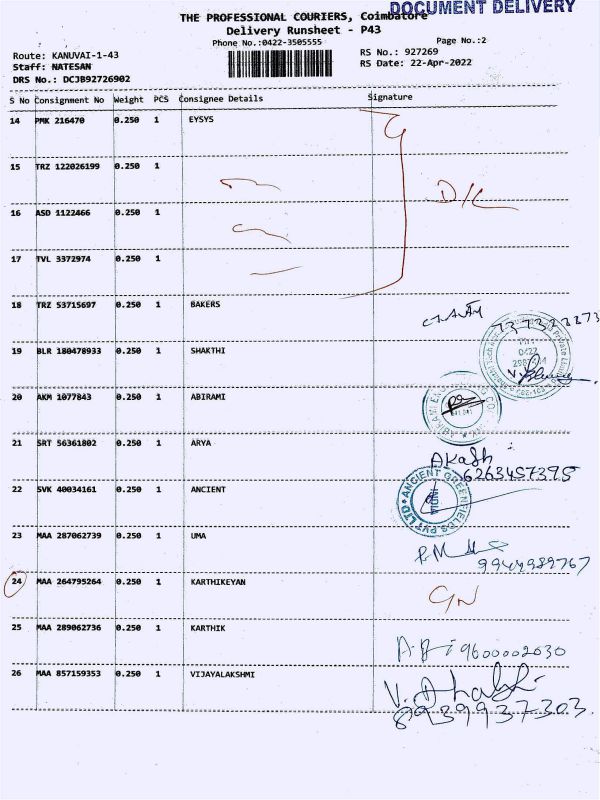 DOCUMENT DELIVERY
THE PROFESSIONAL COURIERS, Coimbatore
Delivery Runsheet - P43
Phone No.:0422-3505555
Page No.:2
Route: KANUVAI-1-43
RS No.: 927269
Staff: NATESAN
RS Date: 22-Apr-2022
DRS No.: DCJB92726902
S No Consignment No Weight PCS Consignee Details Signature
14 PMK 216470 0.250 1 EYSYS
15 TRZ 122026199 0.250 1
D/L
16 ASD 1122466 0.250 1
17 TVL 3372974 0.250 1
18 TRZ 53715697 0.250 1 BAKERS
19 BLR 180478933 0.250 1 SHAKTHI
0422
20 AKM 1077843 0.250 1 ABIRAMI
21 SRT 56361802 0.250 1 ARYA
AKaSh
6263457395
22 SVK 40034161 0.250 1 ANCIENT
ANCIENT GREENFIELDS PVT LTD
INDIA
23 MAA 287062739 0.250 1 UMA
9944989767
24 MAA 264795264 0.250 1 KARTHIKEYAN
GN
25 MAA 289062736 0.250 1 KARTHIK
9600002030
26 MAA 857159353 0.250 1 VIJAYALAKSHMI
8939937303